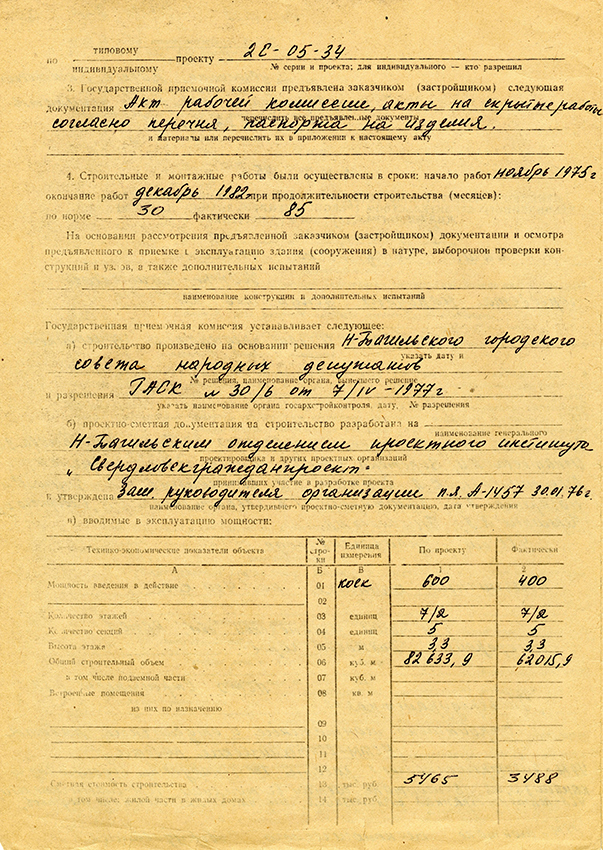 типовому
по проекту 2С-05-34
индивидуальному № серии и проекта; для индивидуального — кто разрешил
3. Государственной приемочной комиссии предъявлена заказчиком (застройщиком) следующая
документация Акт рабочей комиссии, акты на скрытые работы
перечислить все предъявленные документы
согласно перечня, паспорта на изделия.
и материалы или перечислить их в приложении к настоящему акту
4. Строительные и монтажные работы были осуществлены в сроки: начало работ ноябрь 1975 г
окончание работ декабрь 1982г при продолжительности строительства (месяцев):
по норме 30 фактически 85
На основании рассмотрения предъявленной заказчиком (застройщиком) документации и осмотра
предъявленного к приемке в эксплуатацию здания (сооружения) в натуре, выборочной проверки кон-
струкций и узлов, а также дополнительных испытаний
наименование конструкции и дополнительных испытаний
Государственная приемочная комиссия устанавливает следующее:
а) строительство произведено на основании решения Н-Тагильского городского
указать дату и
совета народных депутатов
№ решения, наименование органа, вынесшего решение
и разрешения ГАСК № 30/6 от 7/IV-1977г
указать наименование органа госархстройконтроля, дату, № разрешения
б) проектно-сметная документация на строительство разработана
наименование генерального
Н-Тагильским отделением проектного института
проектировщика и других проектных организаций
„Свердловскгражданпроект"
принявших участие в разработке проекта
и утверждена Зам. руководителя организации п.я. А-1457 30.01.76г.
наименование органа, утвердившего проектно-сметную документацию, дата утверждения
в) вводимые в эксплуатацию мощности:
Технико-экономические показатели объекта № стро-ки Единица измерения По проекту Фактически
А Б В 1 2
Мощность введения в действие 01 коек 600 400
02
Количество этажей 03 единиц 7/2 7/2
Количество секций 04 единиц 5 5
Высота этажа 05 м 3,3 3,3
Общий строительный объем 06 куб. м 82633,9 62015,9
в том числе подземной части 07 куб. м
Встроенные помещения 08 кв. м
из них по назначению
09
10
11
12
Сметная стоимость строительства 13 тыс. руб. 5465 3488
в том числе: жилой части в жилых домах 14 тыс. руб.